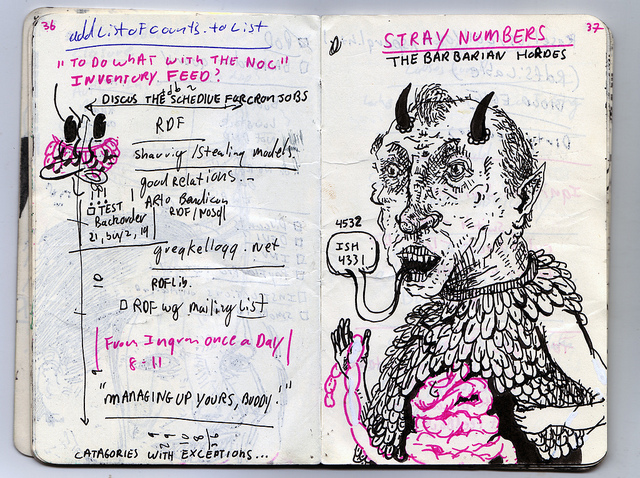 36
add List of counts. to List
"TO DO WHAT WITH THE NOC"
INVENTORY FEED?
DISCUS THE SCHEDIVE FOR CRON JOBS
RDF
sharing/stealing models
good Relations.
TEST
Backorder
21, buy 2, 19
RDF/NoSql
gregkellogg.net
RDFLib.
RDF wg mailing List
From Ingram once a Day
8-11
"MANAGING UP YOURS, BUDDY."
CATAGORIES WITH EXCEPTIONS...
37
STRAY NUMBERS
THE BARBARIAN HORDES
4532
ISH
4331